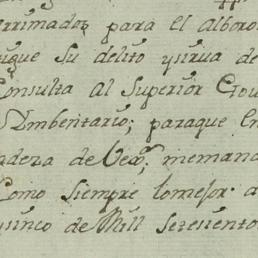 rrimados para el Alboro
igue su delito y sirva de
Consulta al Superior Gov
Ymbentario; paraque en
adera de Vexª; memana
Como siempre lo mejor. a
y sinco de Mill Setesiento